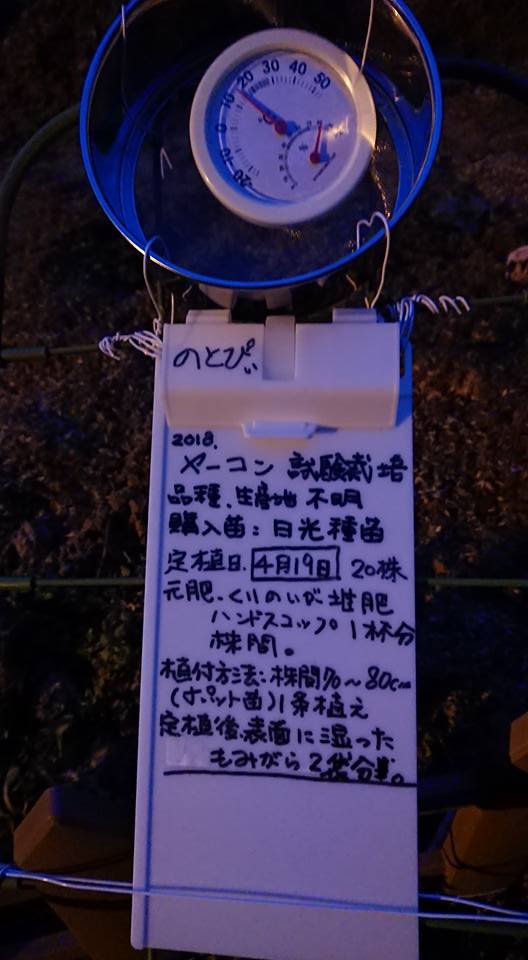 50
40
30
20
10
0
-10
-20
のとぴぃ
2018.
ヤーコン 試験栽培
品種、生産地 不明
購入苗：日光種苗
定植日. 4月19日 20株
元肥.くりのいが堆肥
ハンドスコップ 1杯分
株間。
植付方法：株間70～80cm
(ポット苗)1条植え
定植後、表面に湿った
もみがら 2袋分